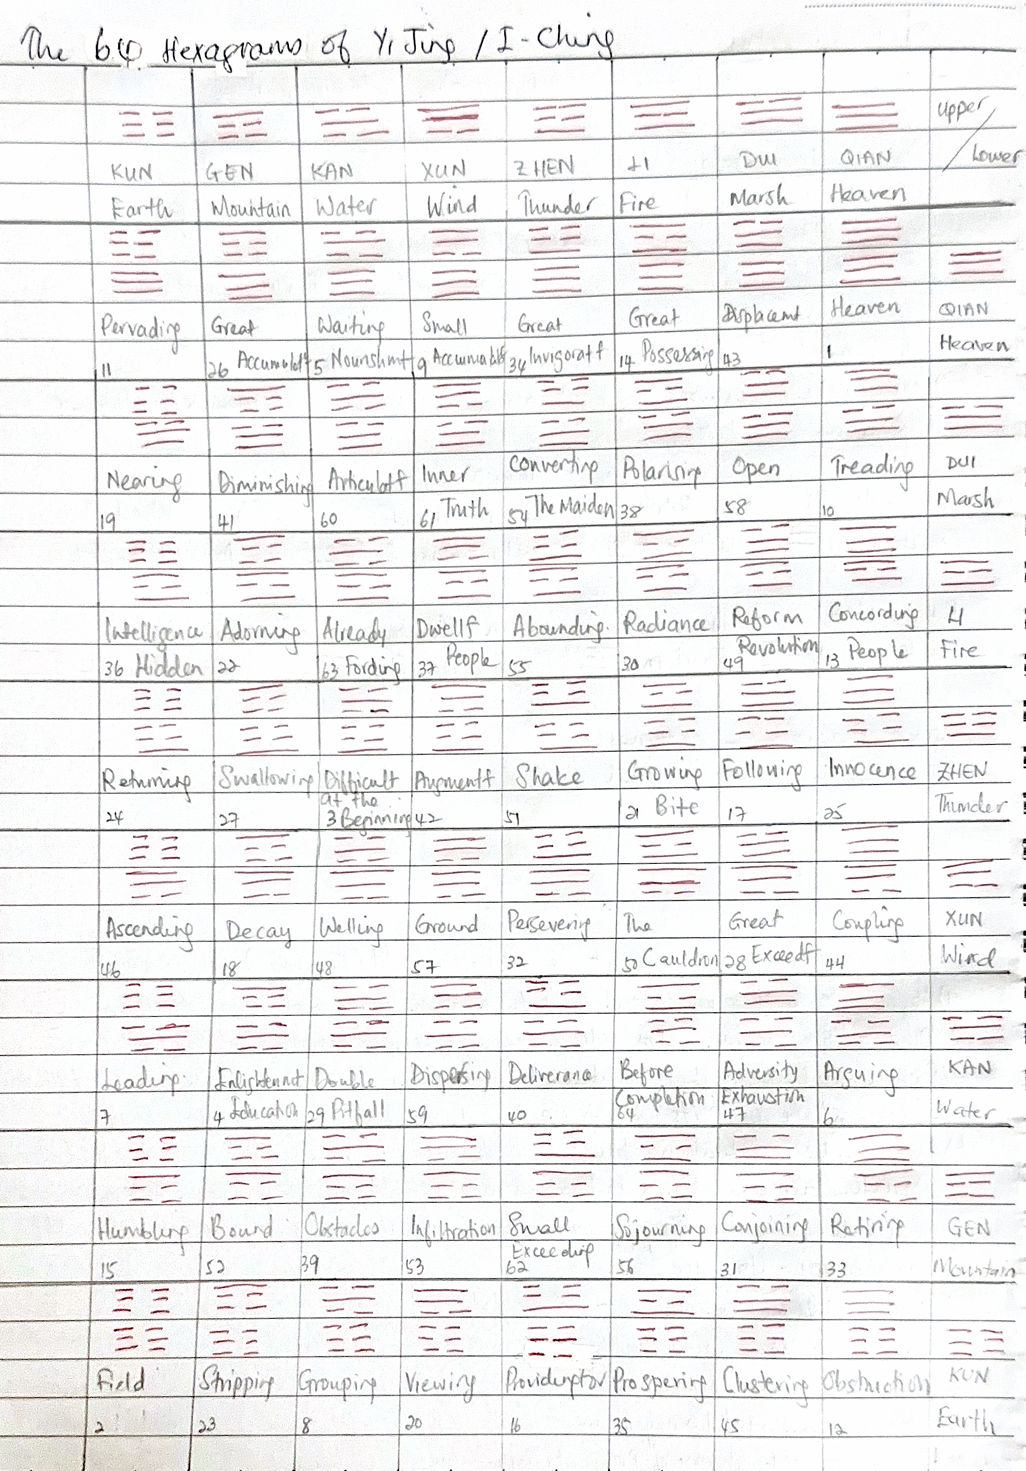 The 64 Hexagrams of Yi Jing / I-Ching
Upper / Lower
KUN GEN KAN XUN ZHEN LI DUI QIAN
Earth Mountain Water Wind Thunder Fire Marsh Heaven
Pervading Great Waiting Small Great Great Displacemt Heaven QIAN
11 26 5 Nourishmt 9 34 14 Possessing 43 1 Heaven
Nearing Diminishing Inner Converting Polarising Open Treading DUI
19 41 60 61 Truth 54 The Maiden 38 58 10 Marsh
Intelligence Adorning Already Abounding. Radiance Reform Concording LI
36 Hidden 22 63 Fording 37 People 55 30 49 Revolution 13 People Fire
Returning Swallowing Difficult Shake Following Innocence ZHEN
24 27 at the 3 Beginning 42 51 21 Bite 17 25 Thunder
Ascending Decay Welling Ground Persevering The Great Coupling XUN
46 18 48 57 32 50 Cauldron 28 44 Wind
Leading. Double Dispersing Deliverance Before Adversity Arguing KAN
7 4 Education 29 Pitfall 59 40 Completion 64 Exhaustion 47 6 Water
Humbling Bound Obstacles Infiltration Small Sojourning Conjoining Retiring GEN
15 52 39 53 Exceeding 62 56 31 33 Mountain
Field Stripping Grouping Viewing Prospering Clustering Obstruction KUN
2 23 8 20 16 35 45 12 Earth